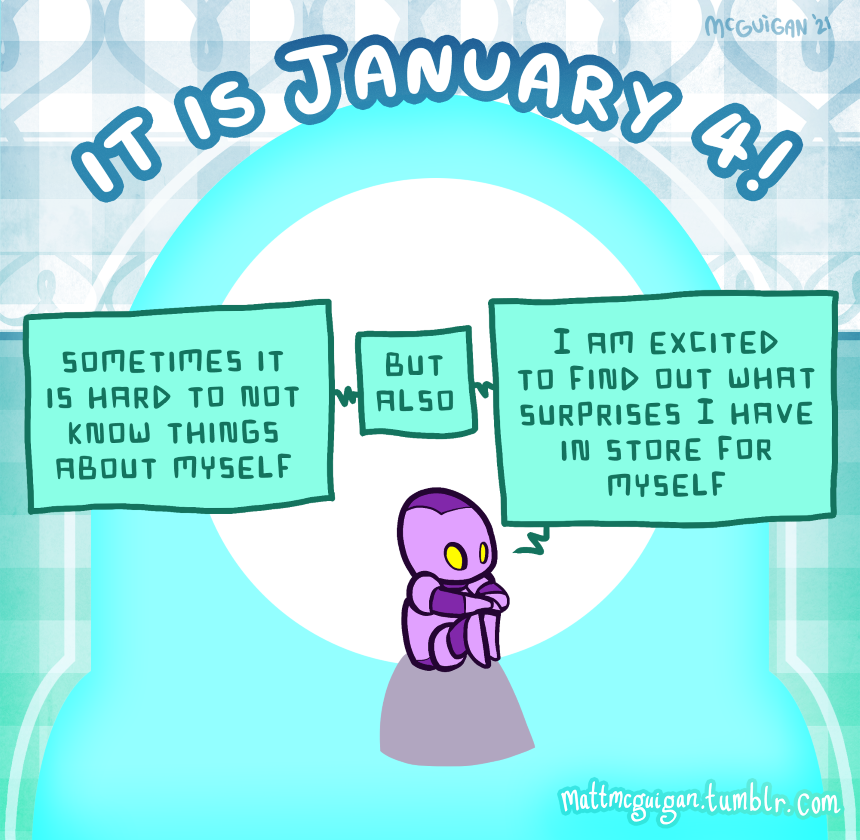 McGUiGAN '21
IT IS JANUARY 4!
SOMETIMES IT
IS HARD TO NOT
KNOW THINGS
ABOUT MYSELF
BUT
ALSO
I AM EXCITED
TO FIND OUT WHAT
SURPRISES I HAVE
IN STORE FOR
MYSELF
mattmcguigan.tumblr.com